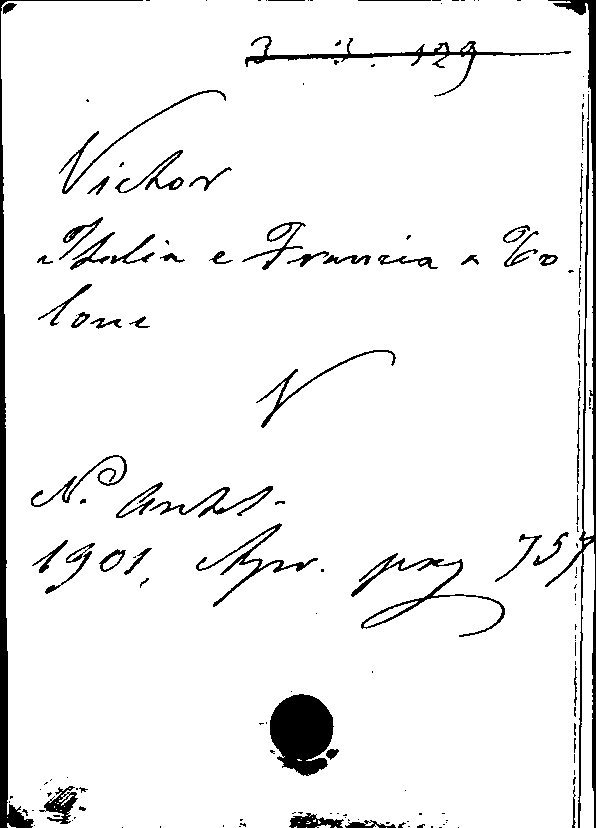 3 3. 129
Victor
Italia e Francia a To-
lone
V
N. Antol.
1901, Apr. pag 757